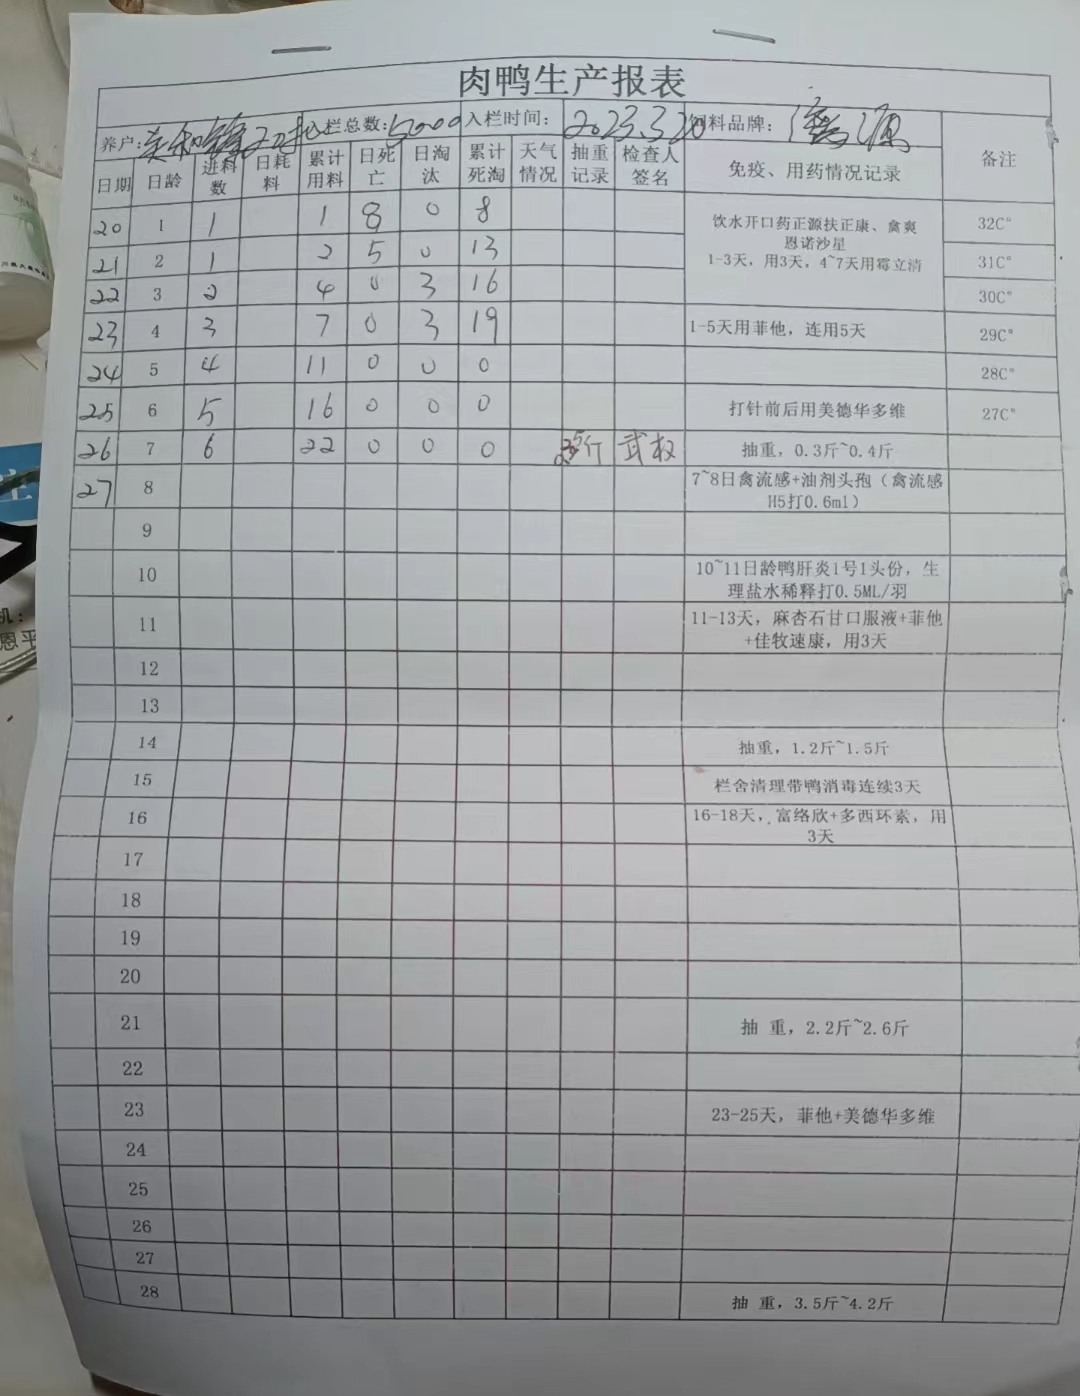 肉鸭生产报表
养户: 入栏总数:5000 入栏时间: 2023.3.20 饲料品牌:
日期 日龄 进料数 日耗料 累计用料 日死亡 日淘汰 累计死淘 天气情况 抽重记录 检查人签名 免疫、用药情况记录 备注
20 1 1 1 8 0 8 饮水开口药正源扶正康、禽爽 32C°
恩诺沙星
21 2 1 2 5 0 13 1-3天，用3天，4~7天用霉立清 31C°
22 3 2 4 0 3 16 30C°
23 4 3 7 0 3 19 1-5天用菲他，连用5天 29C°
24 5 4 11 0 0 0 28C°
25 6 5 16 0 0 0 打针前后用美德华多维 27C°
26 7 6 22 0 0 0 斤 武权 抽重，0.3斤~0.4斤
27 8 7~8日禽流感+油剂头孢（禽流感
H5打0.6ml）
9
10 10~11日龄鸭肝炎1号1头份，生
理盐水稀释打0.5ML/羽
11 11-13天，麻杏石甘口服液+菲他
+佳牧速康，用3天
12
13
14 抽重，1.2斤~1.5斤
15 栏舍清理带鸭消毒连续3天
16 16-18天，富络欣+多西环素，用
3天
17
18
19
20
21 抽 重，2.2斤~2.6斤
22
23 23-25天，菲他+美德华多维
24
25
26
27
28 抽 重，3.5斤~4.2斤
机：
恩平